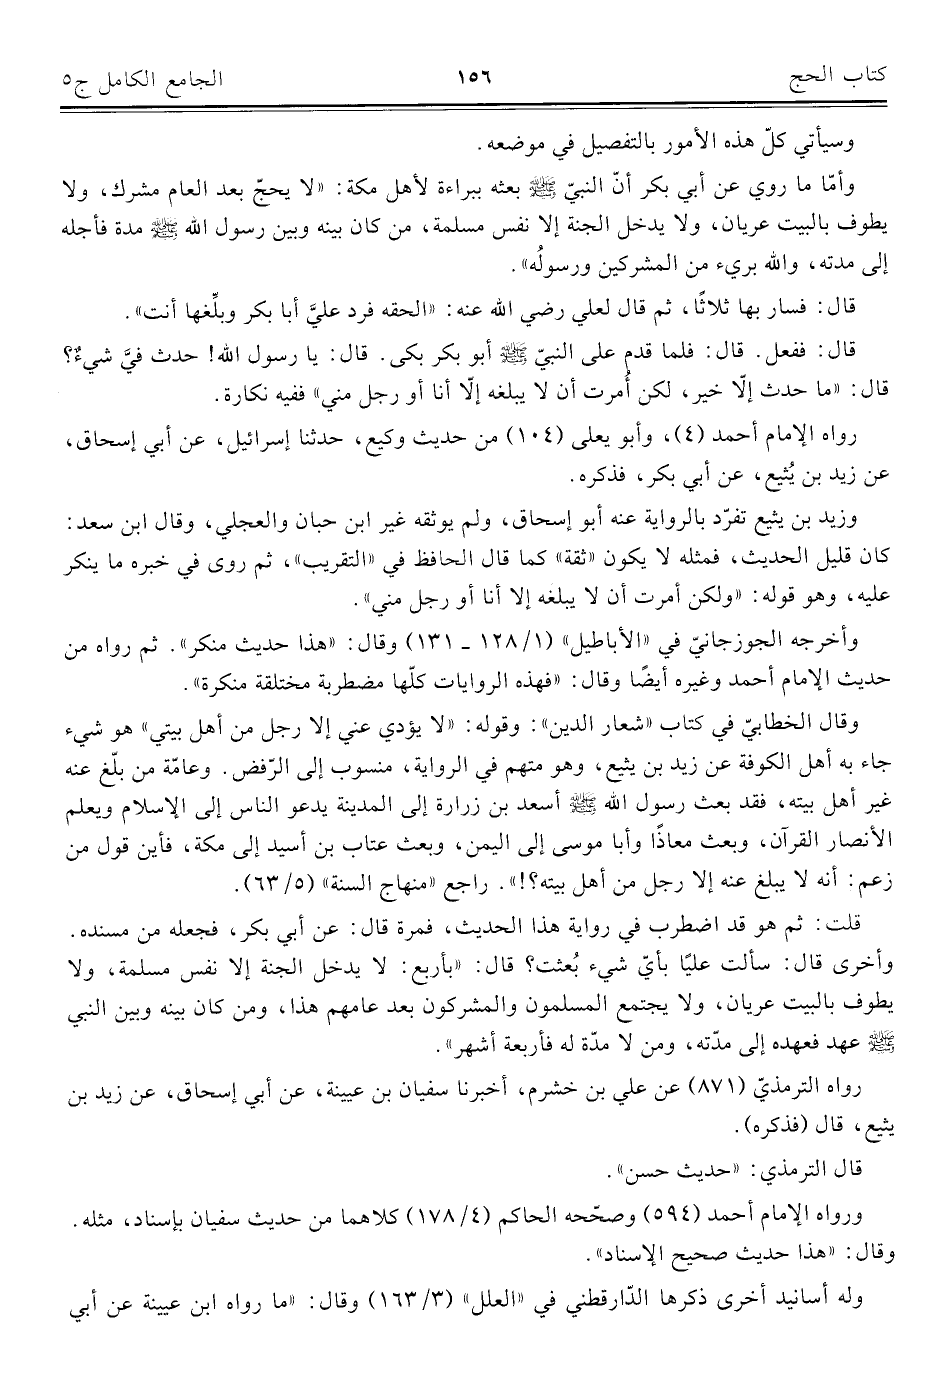 كتاب الحج ١٥٦ الجامع الكامل ج٥
وسيأتي كلّ هذه الأمور بالتفصيل في موضعه.
وأمّا ما روي عن أبي بكر أنّ النبيّ ﷺ بعثه ببراءة لأهل مكة: «لا يحجّ بعد العام مشرك، ولا
يطوف بالبيت عريان، ولا يدخل الجنة إلا نفس مسلمة، من كان بينه وبين رسول الله ﷺ مدة فأجله
إلى مدته، والله بريء من المشركين ورسولُه».
قال: فسار بها ثلاثًا، ثم قال لعلي رضي الله عنه: «الحقه فرد عليَّ أبا بكر وبلِّغها أنت».
قال: ففعل. قال: فلما قدم على النبيّ ﷺ أبو بكر بكى. قال: يا رسول الله! حدث فيَّ شيءٌ؟
قال: «ما حدث إلّا خير، لكن أُمرت أن لا يبلغه إلّا أنا أو رجل مني» ففيه نكارة.
رواه الإمام أحمد (٤)، وأبو يعلى (١٠٤) من حديث وكيع، حدثنا إسرائيل، عن أبي إسحاق،
عن زيد بن يُثيع، عن أبي بكر، فذكره.
وزيد بن يثيع تفرّد بالرواية عنه أبو إسحاق، ولم يوثقه غير ابن حبان والعجلي، وقال ابن سعد:
كان قليل الحديث، فمثله لا يكون «ثقة» كما قال الحافظ في «التقريب»، ثم روى في خبره ما ينكر
عليه، وهو قوله: «ولكن أمرت أن لا يبلغه إلا أنا أو رجل مني».
وأخرجه الجوزجانيّ في «الأباطيل» (١/ ١٢٨ - ١٣١) وقال: «هذا حديث منكر». ثم رواه من
حديث الإمام أحمد وغيره أيضًا وقال: «فهذه الروايات كلّها مضطربة مختلقة منكرة».
وقال الخطابيّ في كتاب «شعار الدين»: وقوله: «لا يؤدي عني إلا رجل من أهل بيتي» هو شيء
جاء به أهل الكوفة عن زيد بن يثيع، وهو متهم في الرواية، منسوب إلى الرّفض. وعامّة من بلّغ عنه
غير أهل بيته، فقد بعث رسول الله ﷺ أسعد بن زرارة إلى المدينة يدعو الناس إلى الإسلام ويعلم
الأنصار القرآن، وبعث معاذًا وأبا موسى إلى اليمن، وبعث عتاب بن أسيد إلى مكة، فأين قول من
زعم: أنه لا يبلغ عنه إلا رجل من أهل بيته؟!». راجع «منهاج السنة» (٥/ ٦٣).
قلت: ثم هو قد اضطرب في رواية هذا الحديث، فمرة قال: عن أبي بكر، فجعله من مسنده.
وأخرى قال: سألت عليًا بأيّ شيء بُعثت؟ قال: «بأربع: لا يدخل الجنة إلا نفس مسلمة، ولا
يطوف بالبيت عريان، ولا يجتمع المسلمون والمشركون بعد عامهم هذا، ومن كان بينه وبين النبي
ﷺ عهد فعهده إلى مدّته، ومن لا مدّة له فأربعة أشهر».
رواه الترمذيّ (٨٧١) عن علي بن خشرم، أخبرنا سفيان بن عيينة، عن أبي إسحاق، عن زيد بن
يثيع، قال (فذكره).
قال الترمذي: «حديث حسن».
ورواه الإمام أحمد (٥٩٤) وصحّحه الحاكم (٤/ ١٧٨) كلاهما من حديث سفيان بإسناد، مثله.
وقال: «هذا حديث صحيح الإسناد».
وله أسانيد أخرى ذكرها الدّارقطني في «العلل» (٣/ ١٦٣) وقال: «ما رواه ابن عيينة عن أبي